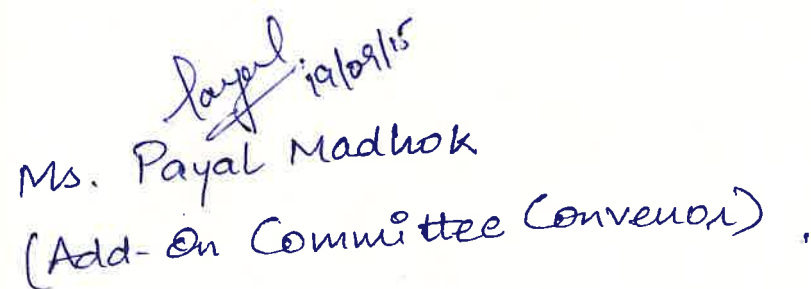 Payal 19/09/15
Ms. Payal Madhok
(Add-On Committee Convenor).